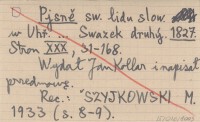 Pjsně sw. lidu slow.
w Uhř. ... Swazek druhý. 1827.
Stron XXX, 31-168.
Wydał Jan Kollar i napisał
przedmowę.
Rec.: SZYJKOWSKI M.
1933 (s. 8-9).